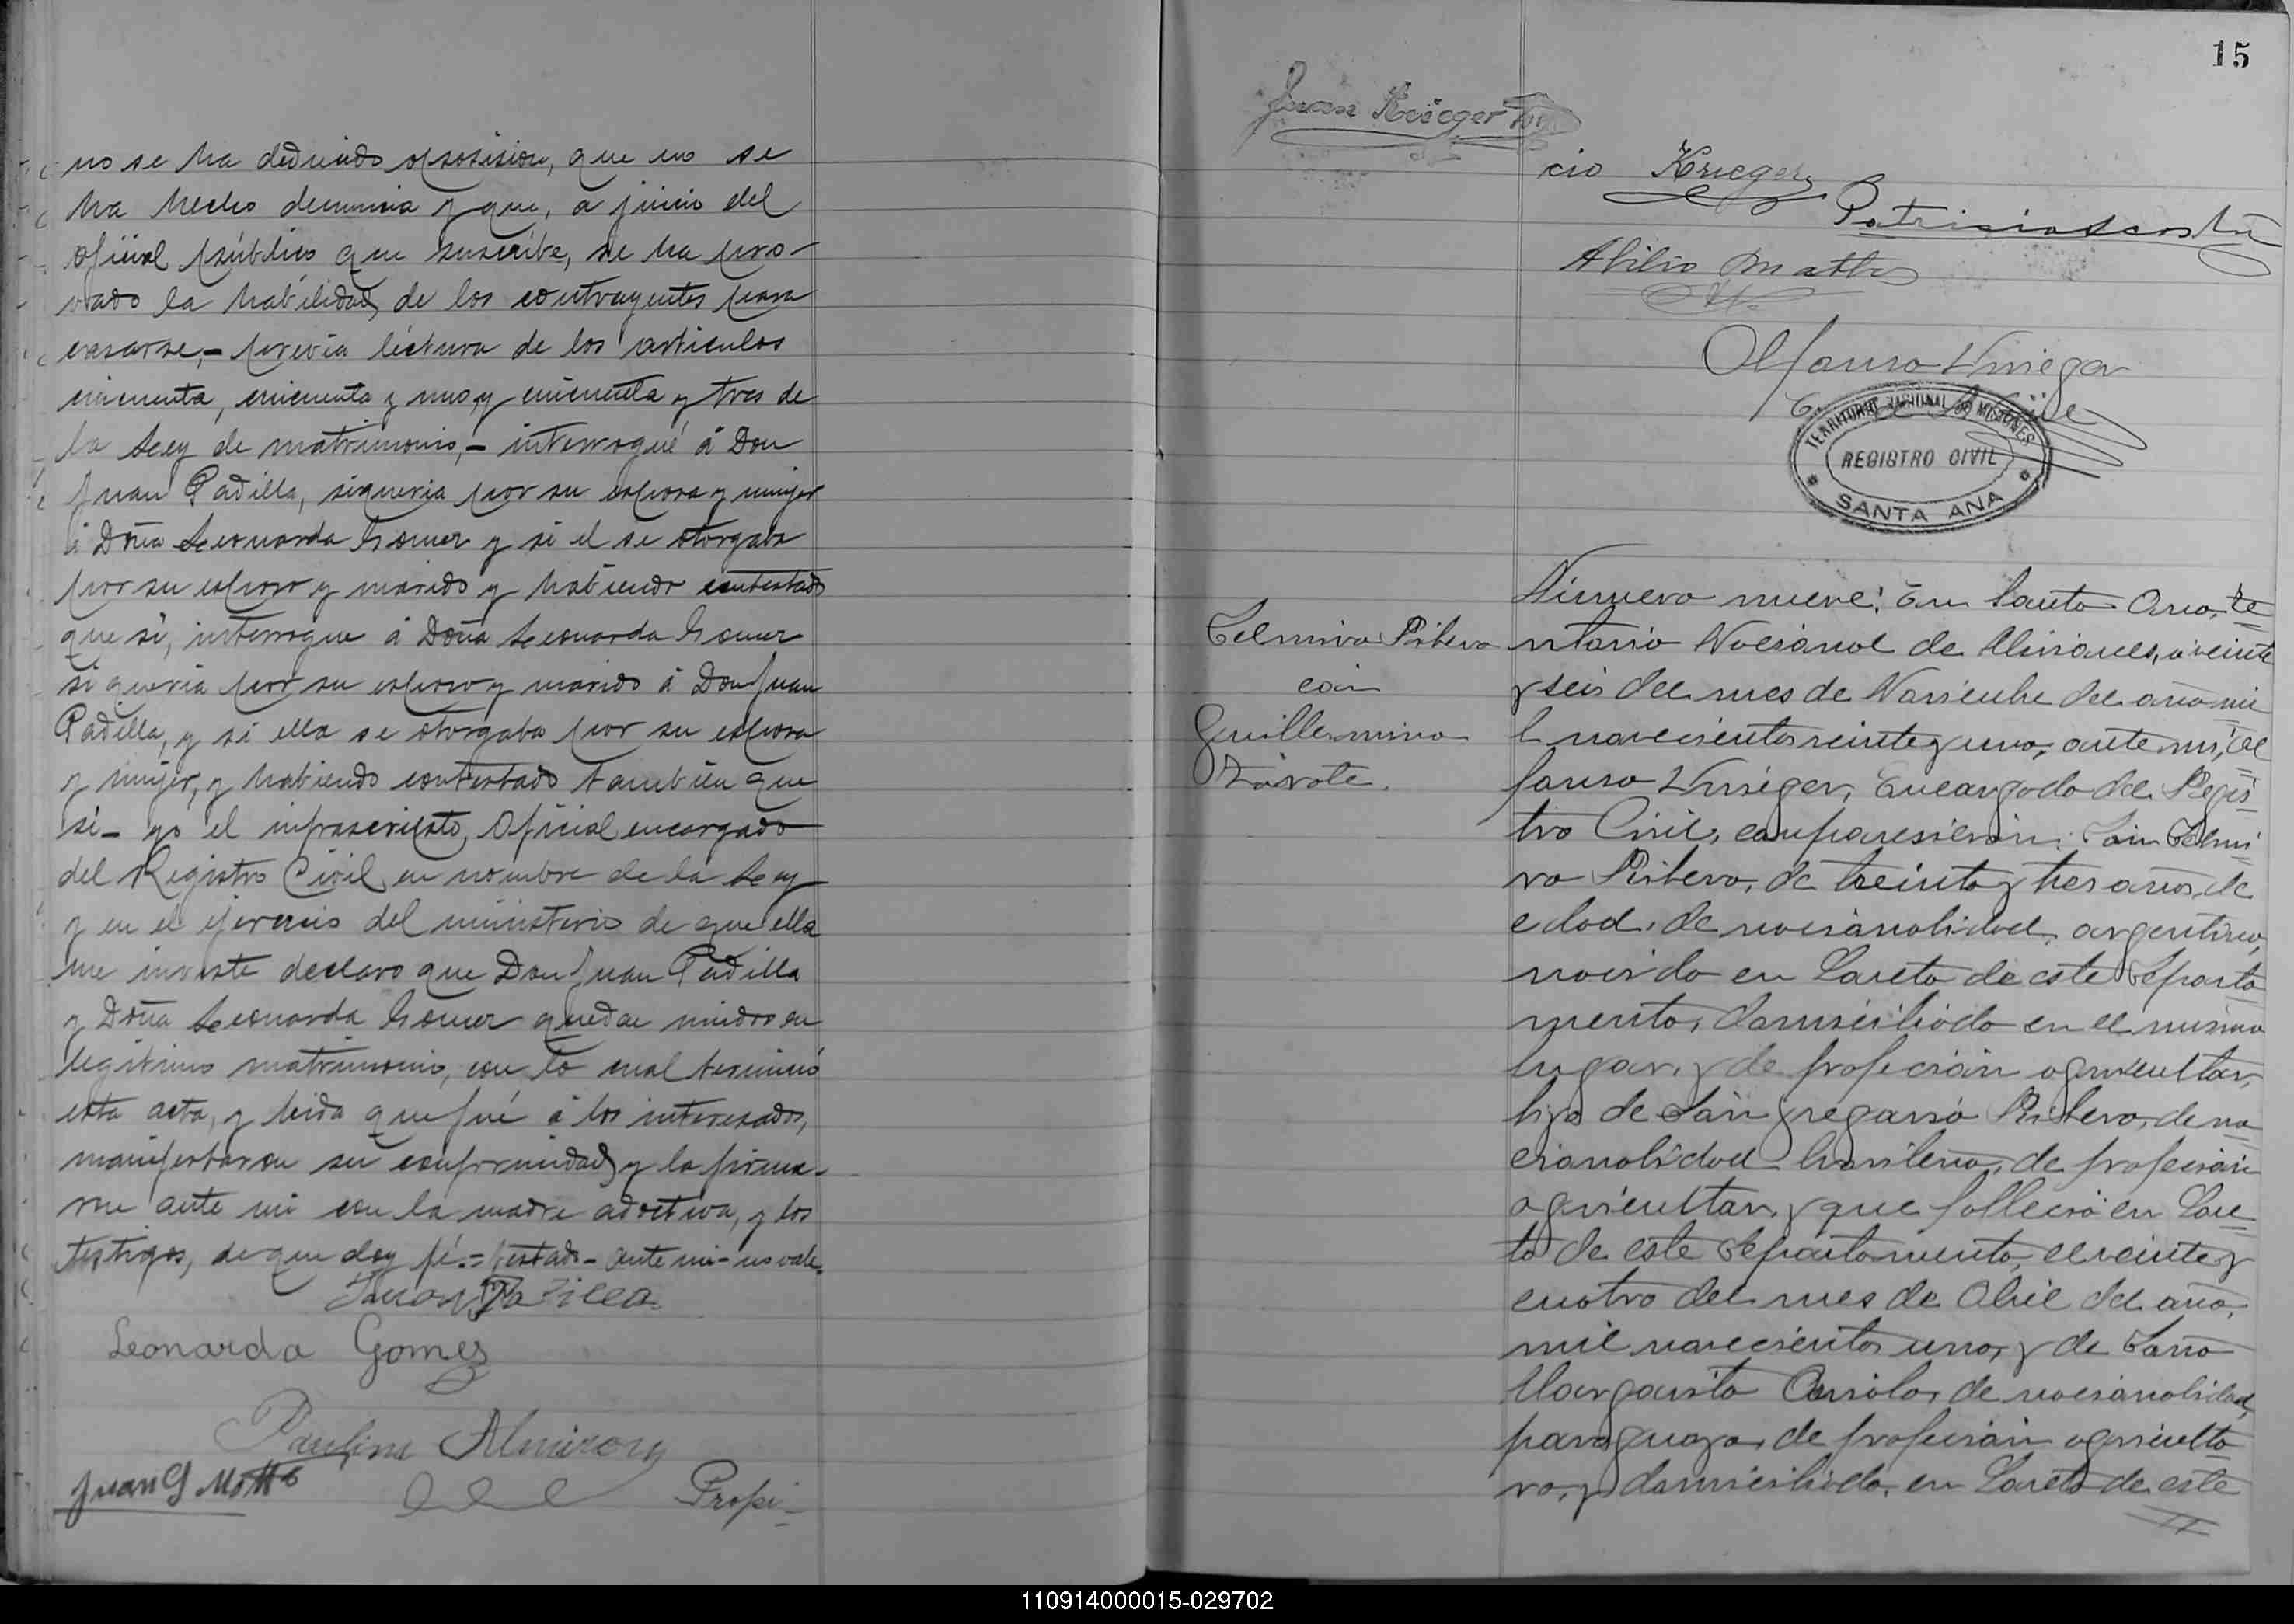 no se ha deducido oposision, que no se
ha hecho denuncia y que, a juicio del
oficial público que suscribe, se ha pro-
vado la habilidad de los contrayentes para
casarse,- previa léctura de los articulos
cincuenta, cincuenta y uno, y cincuenta y tres de
la Ley de matrimonio,- interrogué á Don
Juan Padilla, si queria por su esposa y mujer
á Doña Leonarda Gomez y si el se otorgaba
por su esposo y marido y habiendo contestado
que si, interrogue á Doña Leonarda Gomez
si queria por su esposo y marido á Don Juan
Padilla, y si ella se otorgaba por su esposa
y mujer, y habiendo contestado tambien que
si- yo el infrascripto, Oficial encargado
del Registro Civil en nombre de la Ley
y en el ejercicio del ministerio de que ella
me inviste declaro que Don Juan Padilla
y Doña Leonarda Gomez quedan unidos en
legitimo matrimonio, con lo cual terminó
esta acta, y leida que fué á los interesados,
manifestaron su conformidad y la firma-
ron ante mi con la madre adoctiva, y los
testigos, de que doy fé.= testado- ante mi- no vale.
Juan Padilla
Leonarda Gomes
Paulina Almirony
Juan G Motte
Propi-
15
Juan Krieger
cio Krieger
Patricio Acosta
Abilio Matto
Alfonso Krieger
TERRITORIO NACIONAL DE MISIONES
REGISTRO CIVIL
SANTA ANA
Telmiro Ribero
con
Guillermina
Zárate.
Número nueve: En Santa Ana, Te
rritorio Nacional de Misiones, a veinte
y seis del mes de Noviembre del año mi
l novecientos veinte y uno, ante mi, Al
fonso Krieger, Encargado del Regis
tro Civil, comparesieron: Don Telmi
ro Ribero, de treinta y tres años de
edad, de nacionalidad argentino,
nacido en Loreto de este Departa
mento, domiciliado en el mismo
lugar, y de profecion agricultor,
hijo de Don gregorio Ribero, de na
cionalidad brasilero, de profecion
agricultor, y que fallecio en Lore
to de este Departamento, el veinte y
cuatro del mes de Abril del año
mil novecientos uno, y de Doña
Margarita de nacionalidad,
paraguaya, de profecion agriculto
ra, y domiciliada, en Loreto de este
110914000015-029702